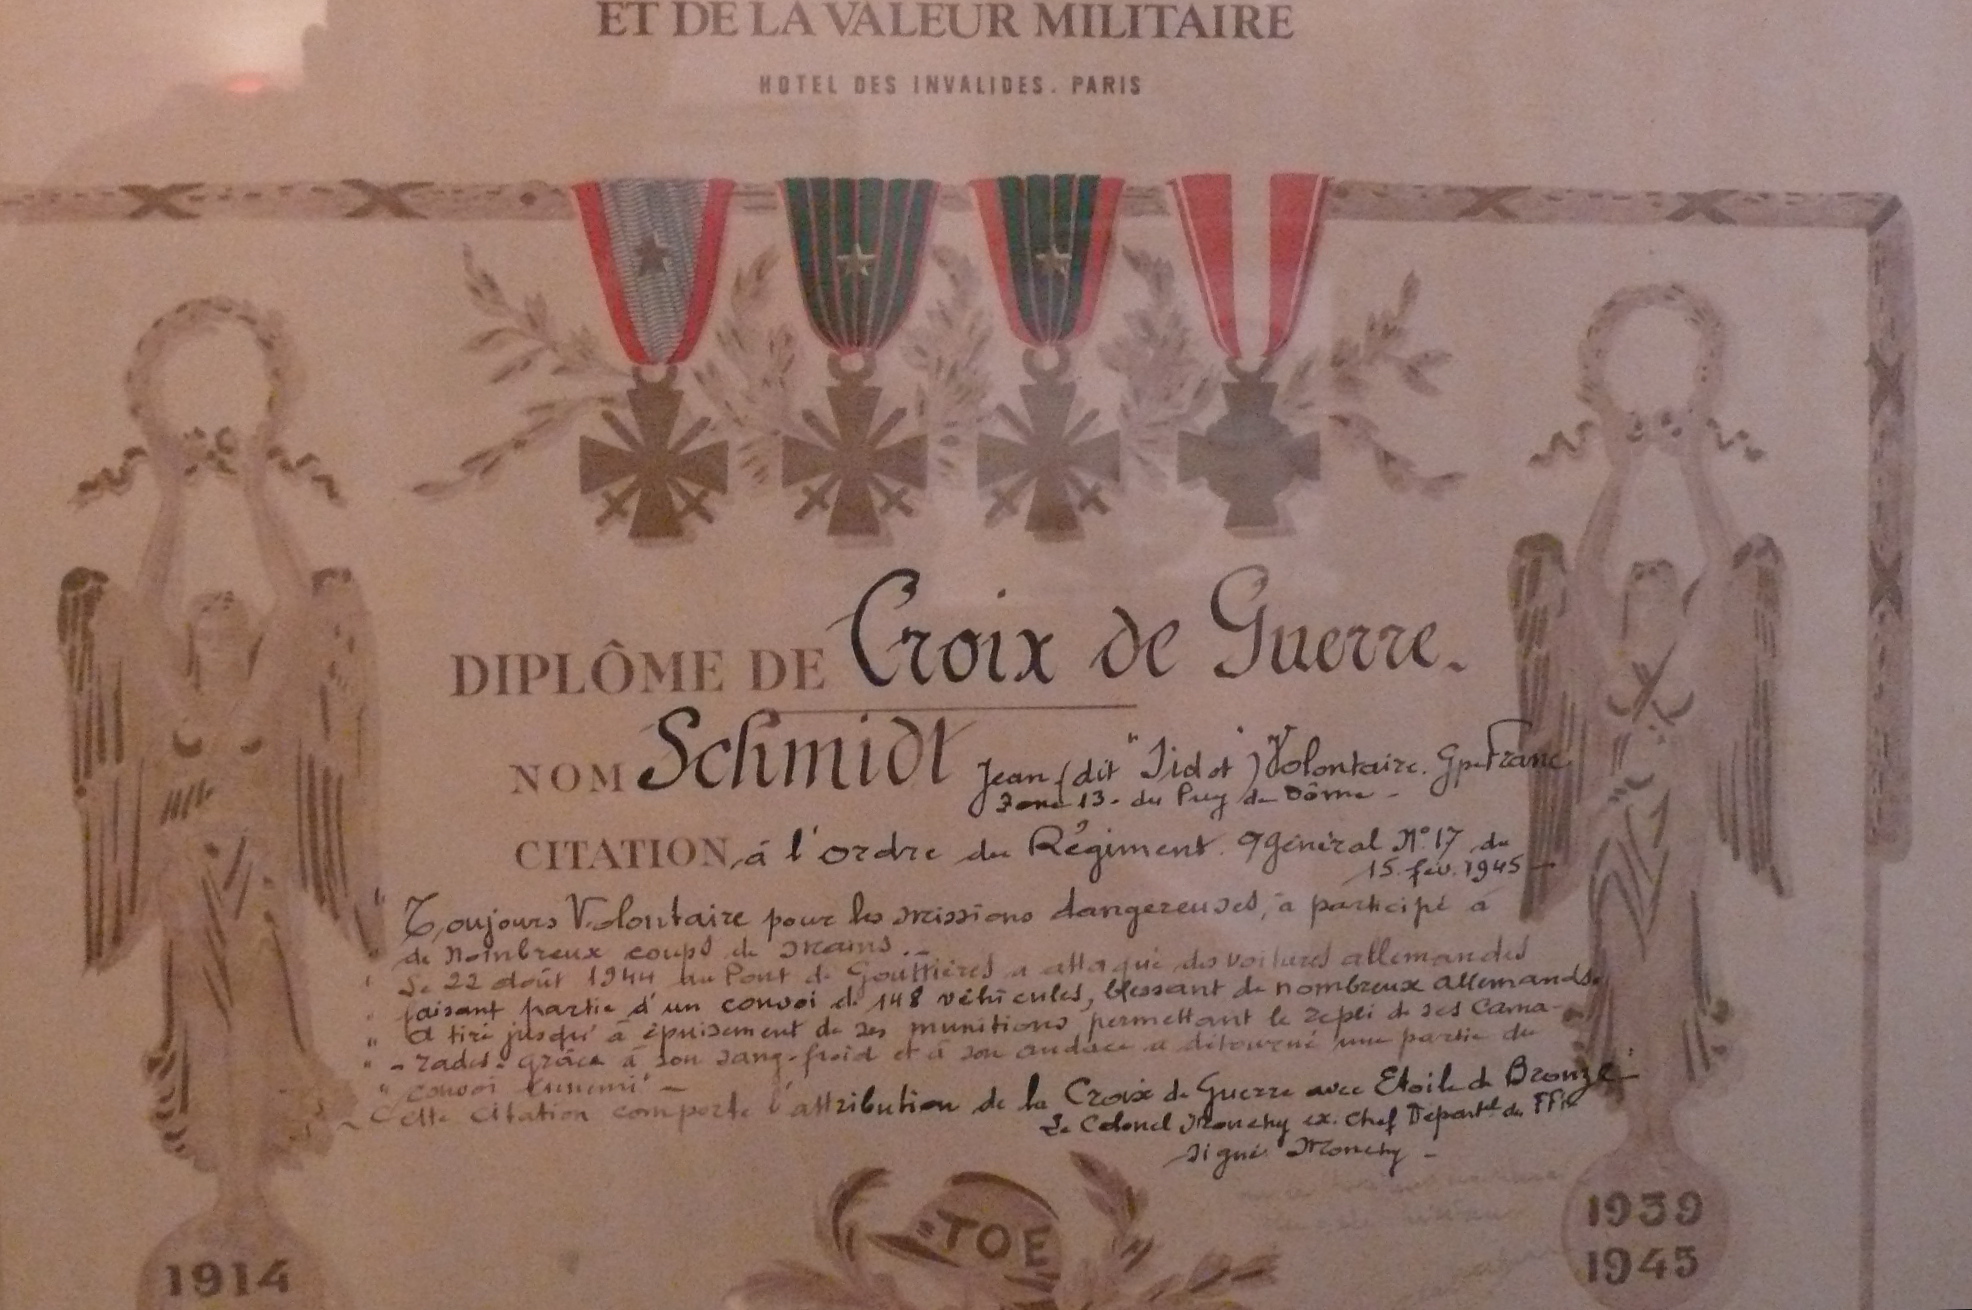 ET DE LA VALEUR MILITAIRE
HOTEL DES INVALIDES. PARIS
DIPLÔME DE Croix de Guerre.
NOM Schmidt Jean (dit "Jidot") Volontaire. Gpe Franc
Zone 13. du Puy de Dôme -
CITATION, à l'ordre du Régiment. Général N° 17 du
15. fév. 1945 -
" Toujours Volontaire pour les missions dangereuses, a participé à
" de Nombreux coups de mains. -
" Le 22 août 1944 au Pont de Gouttières a attaqué des voitures allemandes
" faisant partie d'un convoi de 148 véhicules, blessant de nombreux allemands.
" A tiré jusqu'à épuisement de ses munitions, permettant le repli de ses Cama-
" - rades. Grâce à son sang-froid et à son audace a détourné une partie du
" convoi Ennemi" -
- Cette Citation comporte l'attribution de la Croix de Guerre avec Etoile de Bronze -
Le Colonel Monchy ex. Chef Départel des FFI
Signé Monchy -
TOE
1914
1939
1945